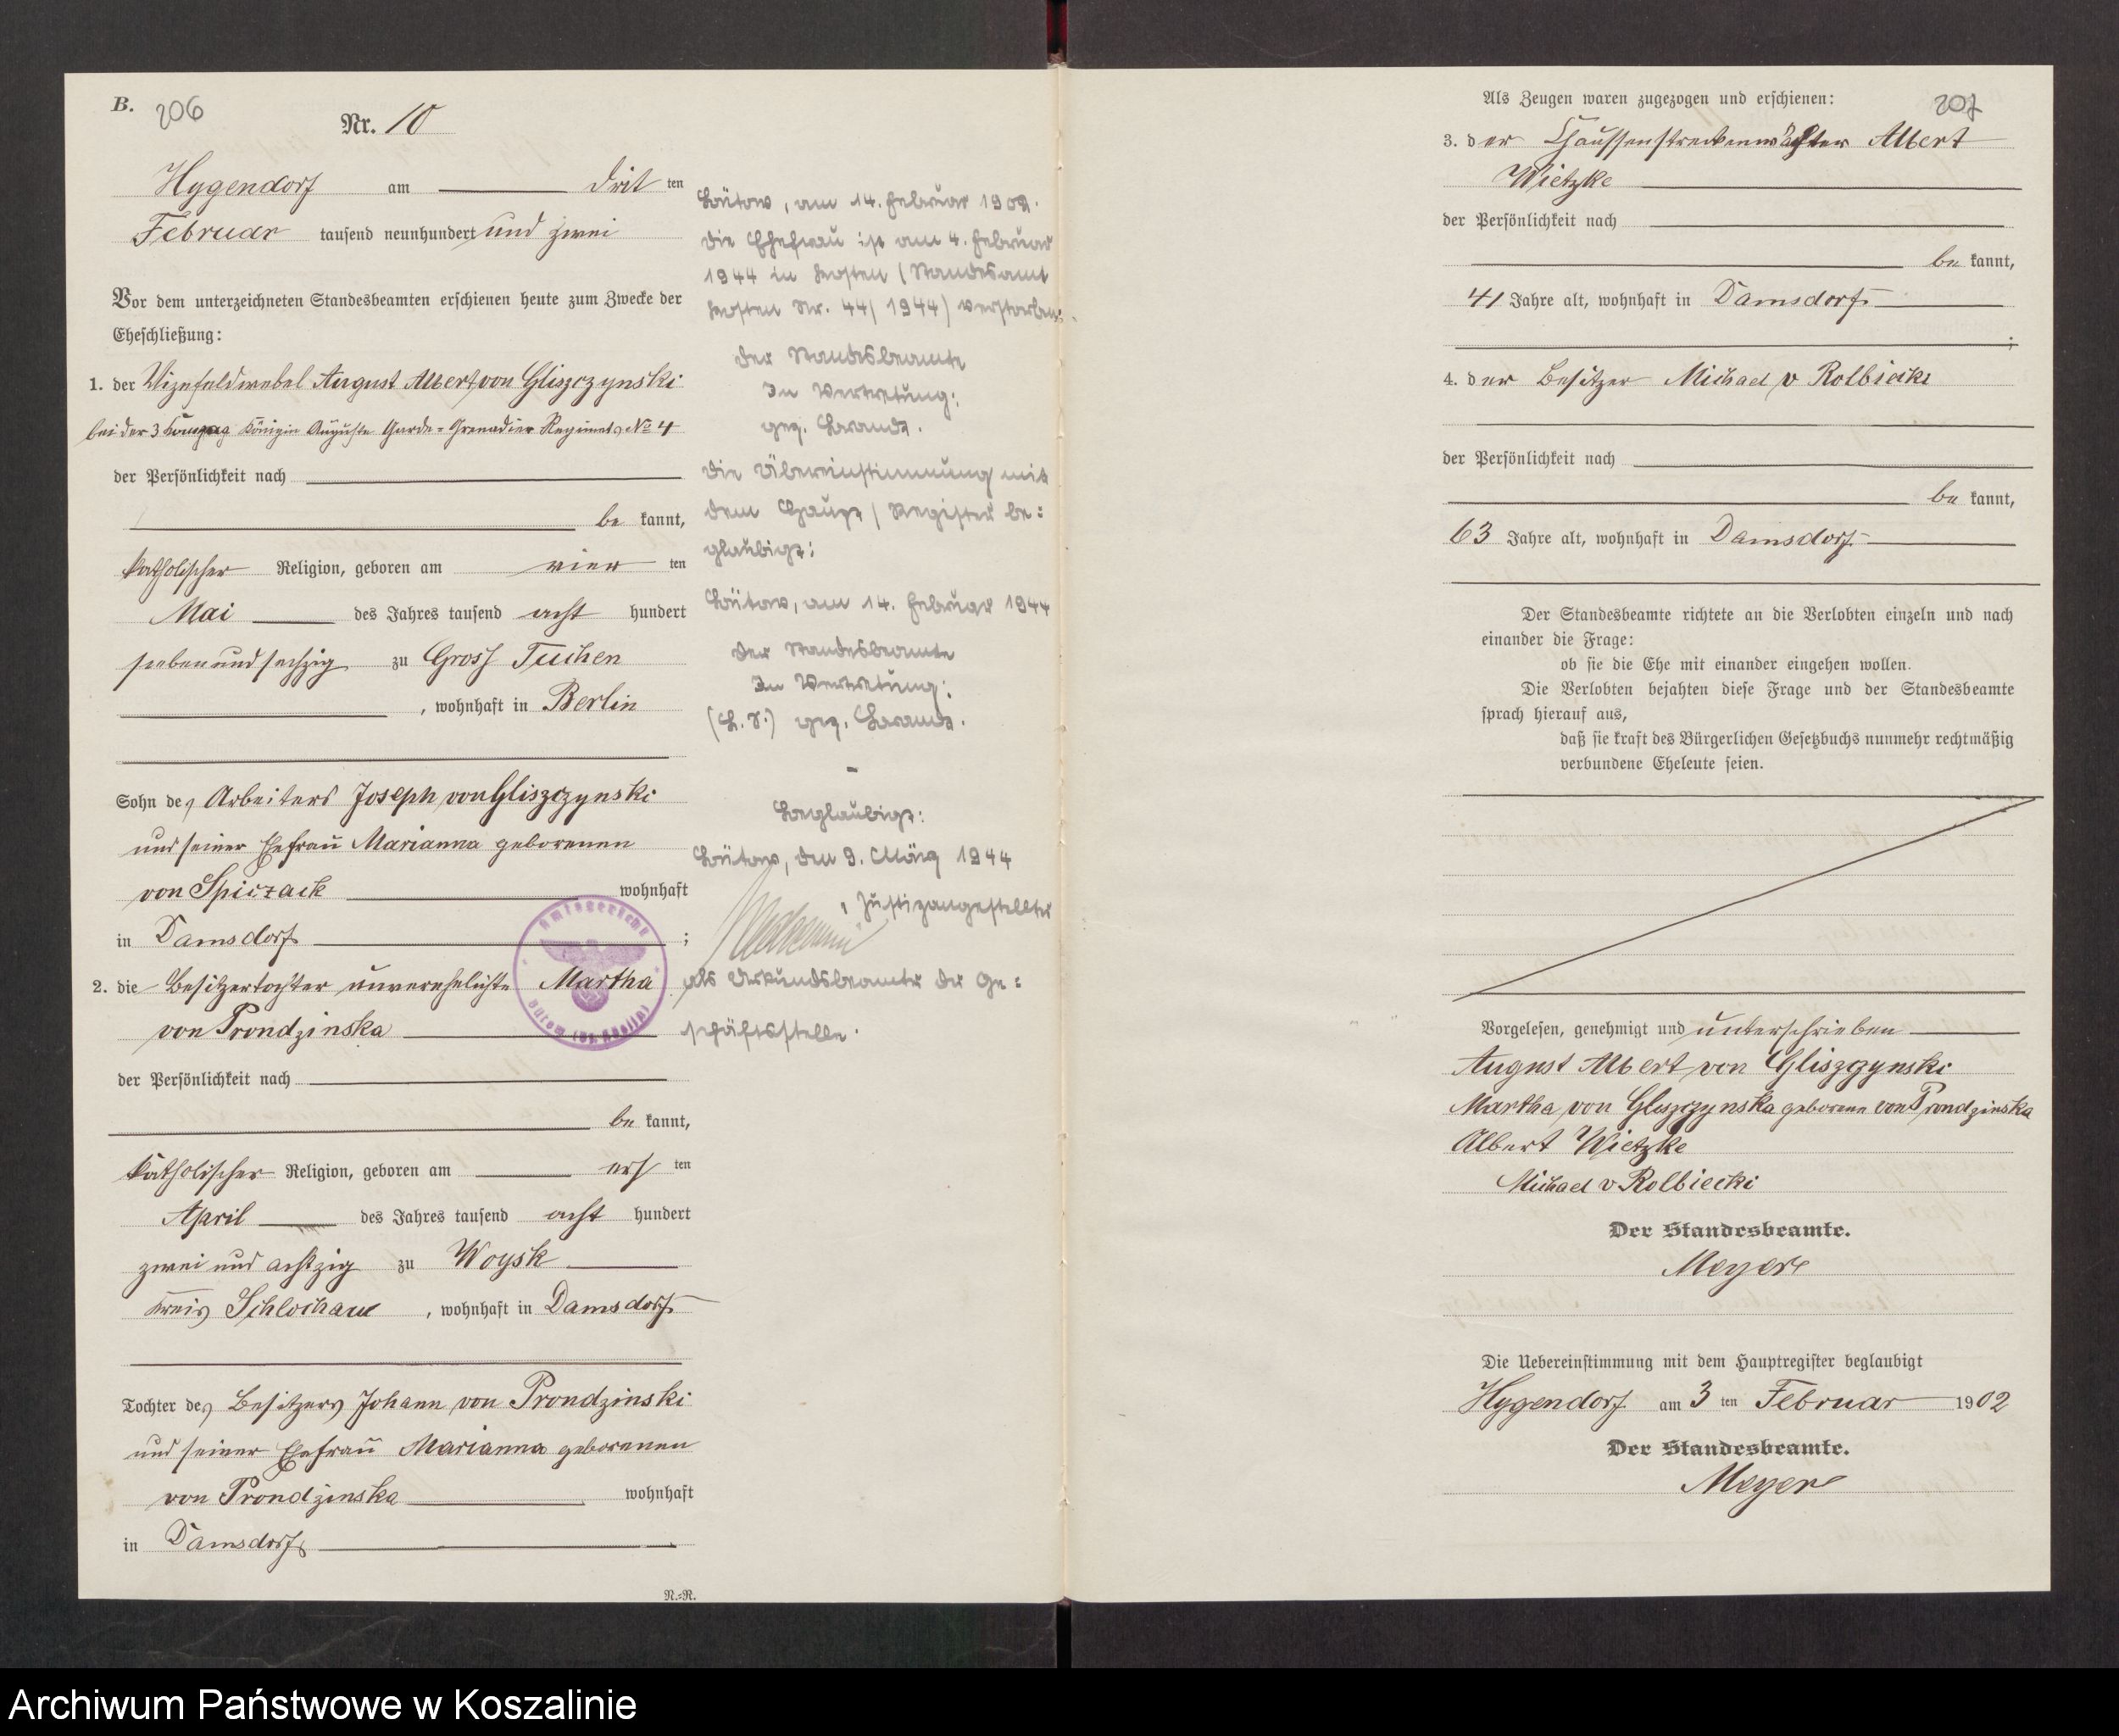 B. 206
Nr. 10
Hygendorf am drit ten
Februar tausend neunhundert und zwei
Vor dem unterzeichneten Standesbeamten erschienen heute zum Zwecke der
Eheschließung:
1. der Vizefeldwebel August Albert von Gliszczynski
bei der 3 Königin Augusta Garde-Grenadier Regiments No 4
der Persönlichkeit nach
be kannt,
katholischer Religion, geboren am vier ten
Mai des Jahres tausend acht hundert
sieben und sechzig zu Gross Tuchen
, wohnhaft in Berlin
Sohn des Arbeiters Joseph von Gliszczynski
und seiner Ehefrau Marianna geborenen
von Spiczack wohnhaft
in Damsdorf ;
2. die Besitzertochter unverehelichte Martha
von Prondzinska
der Persönlichkeit nach
be kannt,
katholischer Religion, geboren am ers ten
April des Jahres tausend acht hundert
zwei und achtzig zu Woysk
Kreis Schlochau , wohnhaft in Damsdorf
Tochter des Besitzers Johann von Prondzinski
und seiner Ehefrau Marianna geborenen
von Prondzinska wohnhaft
in Damsdorf
N.=R.
Bütow, am 14. Februar
Die Ehefrau ist am 4. Februar
1944 in (Standesamt
Nr. 44/1944) verstorben.
Der Standesbeamte
In Vertretung:
gez.
Die Übereinstimmung mit
dem Haupt/Register be=
glaubigt:
Bütow, am 14. Februar 1944
Der Standesbeamte
In Vertretung:
(L. S.) gez.
Beglaubigt:
Bütow, den 9. März 1944
, Justizangestellter
als Urkundsbeamter der Ge=
schäftsstelle.
Amtsgericht
Bütow (Bz. Köslin)
207
Als Zeugen waren zugezogen und erschienen:
3. der Chausseestreckenwächter Albert
Wietzke
der Persönlichkeit nach
be kannt,
41 Jahre alt, wohnhaft in Damsdorf
;
4. der Besitzer Michael v Rolbiecki
der Persönlichkeit nach
be kannt,
63 Jahre alt, wohnhaft in Damsdorf
Der Standesbeamte richtete an die Verlobten einzeln und nach
einander die Frage:
ob sie die Ehe mit einander eingehen wollen.
Die Verlobten bejahten diese Frage und der Standesbeamte
sprach hierauf aus,
daß sie kraft des Bürgerlichen Gesetzbuchs nunmehr rechtmäßig
verbundene Eheleute seien.
Vorgelesen, genehmigt und unterschrieben
August Albert von Gliszczynski
Martha von Gliszczynska geborene von Prondzinska
Albert Wietzke
Michael v Rolbiecki
Der Standesbeamte.
Meyer
Die Uebereinstimmung mit dem Hauptregister beglaubigt
Hygendorf am 3 ten Februar 1902
Der Standesbeamte.
Meyer
Archiwum Państwowe w Koszalinie